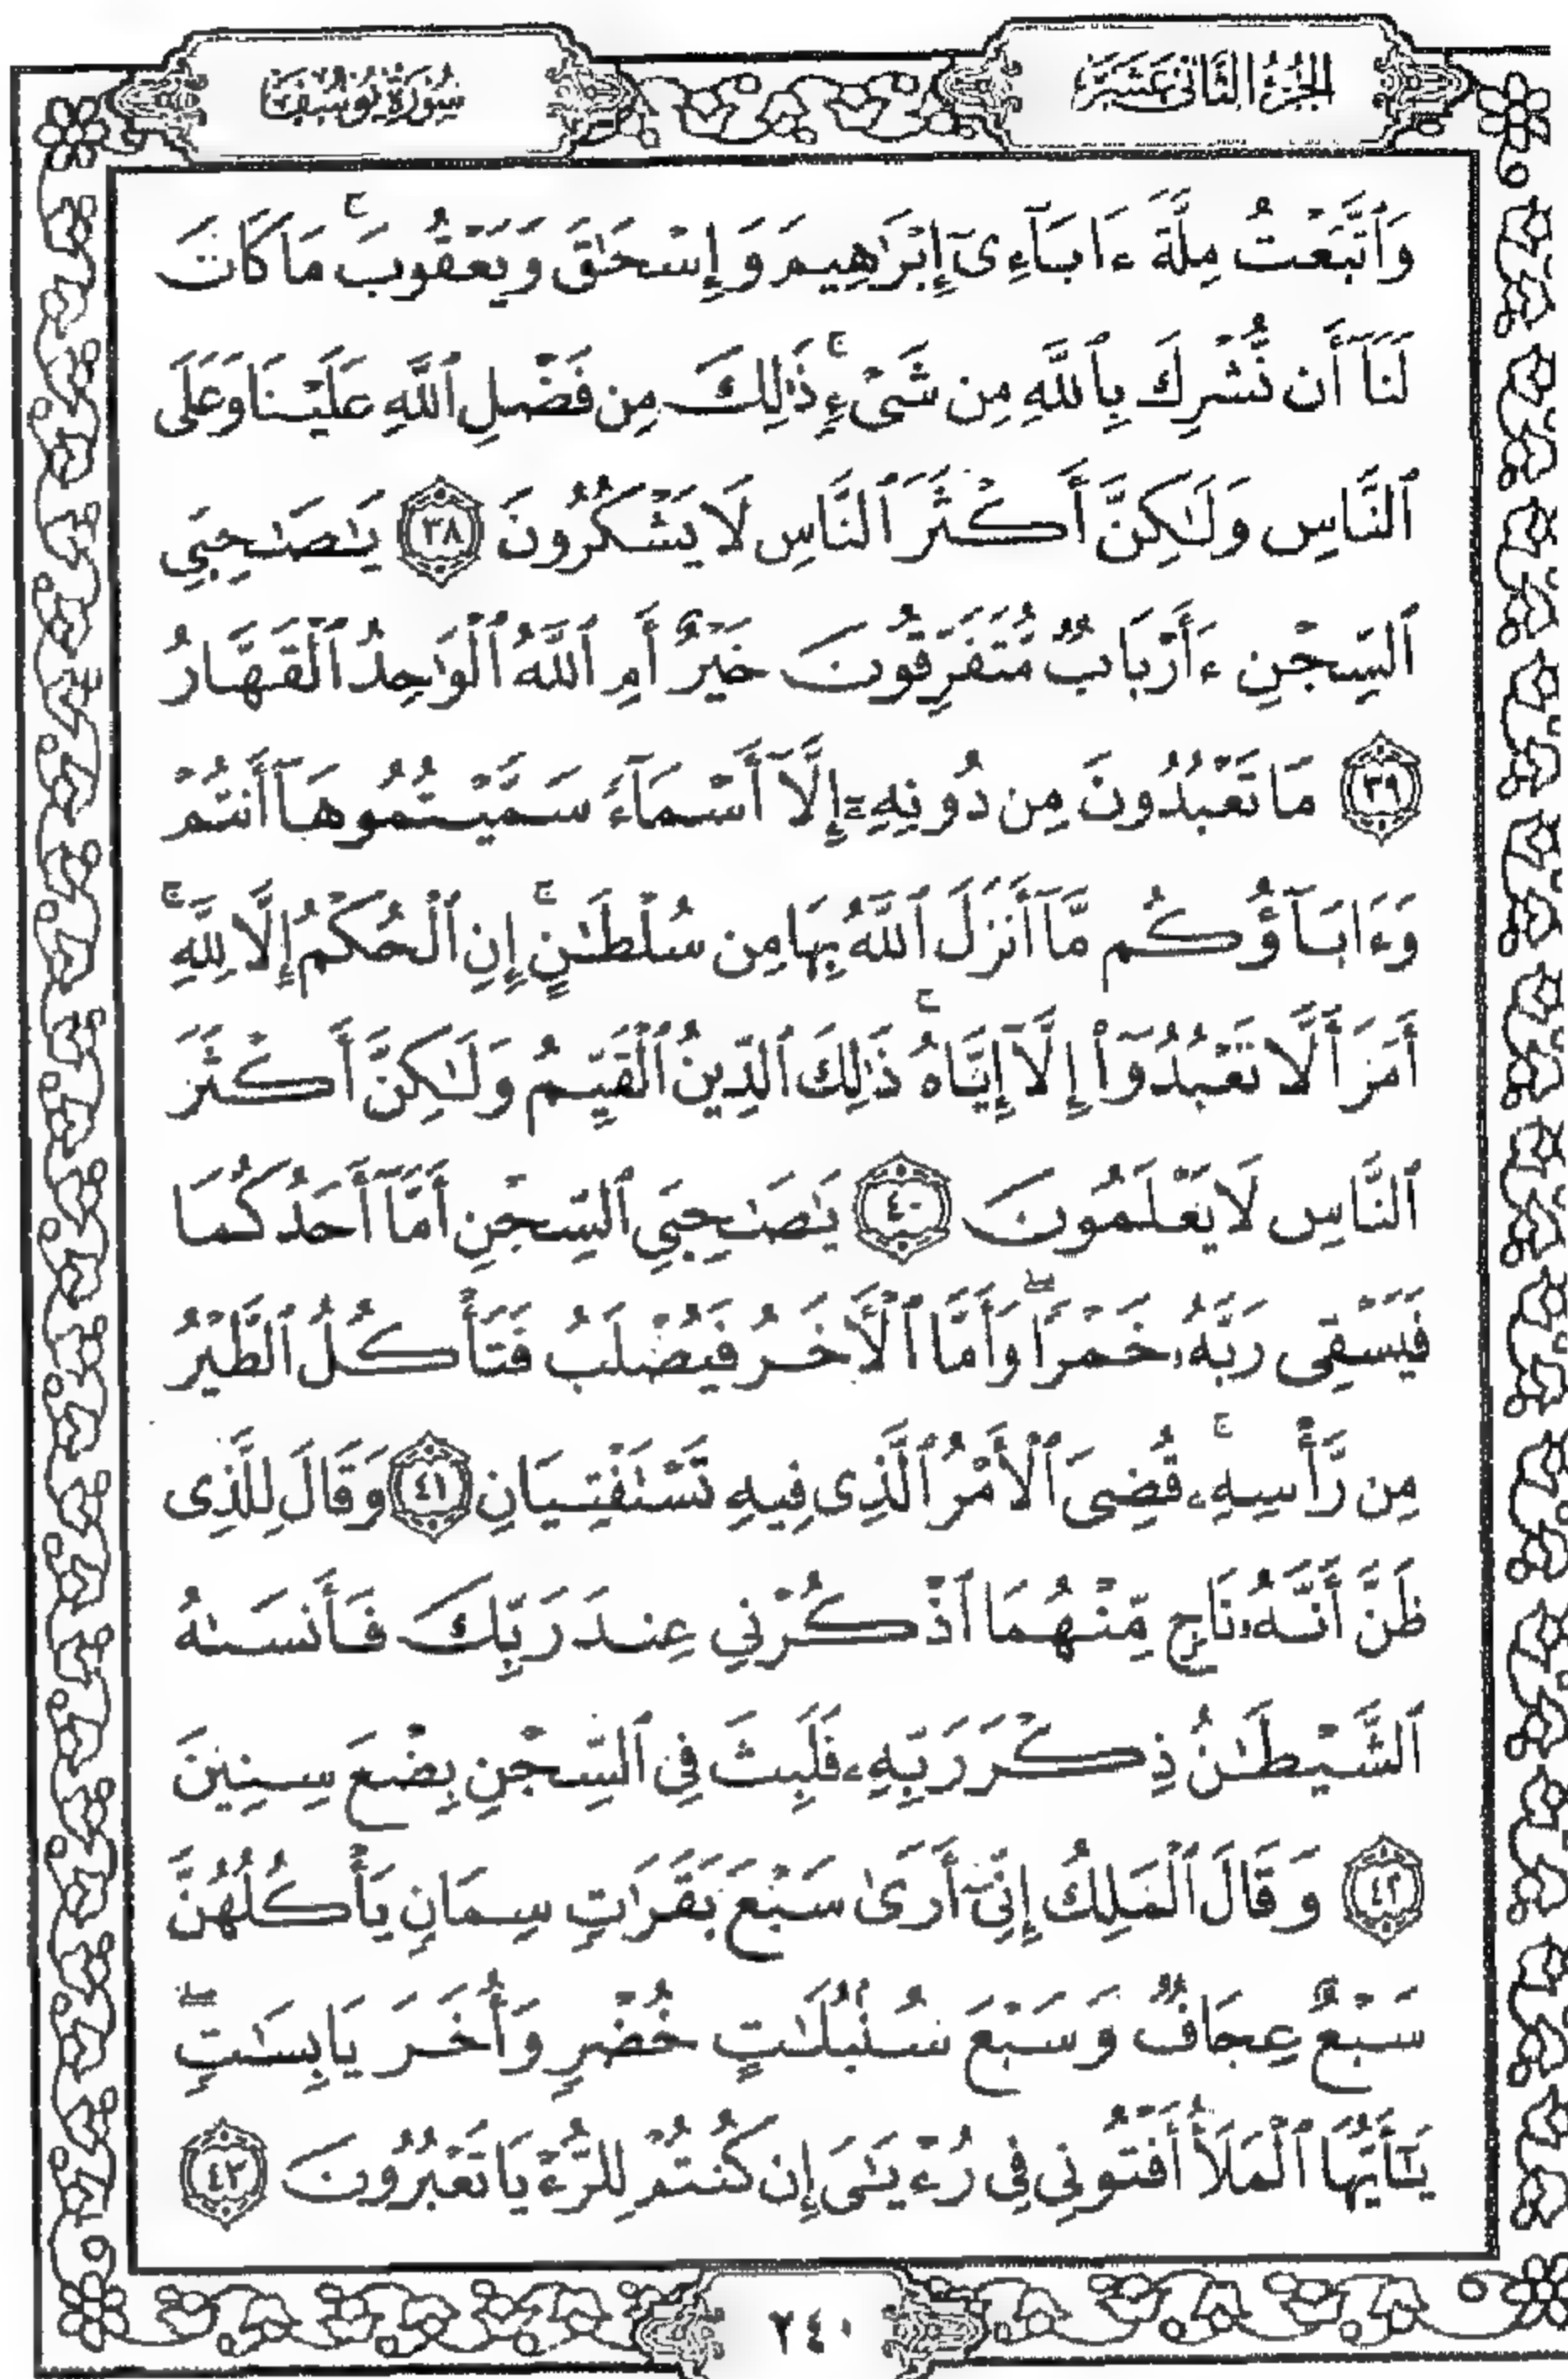 الجزء الثاني عشر
سورة يوسف
وَٱتَّبَعْتُ مِلَّةَ ءَابَآءِىٓ إِبْرَٰهِيمَ وَإِسْحَٰقَ وَيَعْقُوبَ ۚ مَا كَانَ
لَنَآ أَن نُّشْرِكَ بِٱللَّهِ مِن شَىْءٍ ۚ ذَٰلِكَ مِن فَضْلِ ٱللَّهِ عَلَيْنَا وَعَلَى
ٱلنَّاسِ وَلَٰكِنَّ أَكْثَرَ ٱلنَّاسِ لَا يَشْكُرُونَ ٣٨ يَٰصَٰحِبَىِ
ٱلسِّجْنِ ءَأَرْبَابٌ مُّتَفَرِّقُونَ خَيْرٌ أَمِ ٱللَّهُ ٱلْوَٰحِدُ ٱلْقَهَّارُ
٣٩ مَا تَعْبُدُونَ مِن دُونِهِۦٓ إِلَّآ أَسْمَآءً سَمَّيْتُمُوهَآ أَنتُمْ
وَءَابَآؤُكُم مَّآ أَنزَلَ ٱللَّهُ بِهَا مِن سُلْطَٰنٍ ۚ إِنِ ٱلْحُكْمُ إِلَّا لِلَّهِ ۚ
أَمَرَ أَلَّا تَعْبُدُوٓا۟ إِلَّآ إِيَّاهُ ۚ ذَٰلِكَ ٱلدِّينُ ٱلْقَيِّمُ وَلَٰكِنَّ أَكْثَرَ
ٱلنَّاسِ لَا يَعْلَمُونَ ٤٠ يَٰصَٰحِبَىِ ٱلسِّجْنِ أَمَّآ أَحَدُكُمَا
فَيَسْقِى رَبَّهُۥ خَمْرًا ۖ وَأَمَّا ٱلْأَخَرُ فَيُصْلَبُ فَتَأْكُلُ ٱلطَّيْرُ
مِن رَّأْسِهِۦ ۚ قُضِىَ ٱلْأَمْرُ ٱلَّذِى فِيهِ تَسْتَفْتِيَانِ ٤١ وَقَالَ لِلَّذِى
ظَنَّ أَنَّهُۥ نَاجٍ مِّنْهُمَا ٱذْكُرْنِى عِندَ رَبِّكَ فَأَنسَىٰهُ
ٱلشَّيْطَٰنُ ذِكْرَ رَبِّهِۦ فَلَبِثَ فِى ٱلسِّجْنِ بِضْعَ سِنِينَ
٤٢ وَقَالَ ٱلْمَلِكُ إِنِّىٓ أَرَىٰ سَبْعَ بَقَرَٰتٍ سِمَانٍ يَأْكُلُهُنَّ
سَبْعٌ عِجَافٌ وَسَبْعَ سُنۢبُلَٰتٍ خُضْرٍ وَأُخَرَ يَابِسَٰتٍ ۖ
يَٰٓأَيُّهَا ٱلْمَلَأُ أَفْتُونِى فِى رُءْيَٰىَ إِن كُنتُمْ لِلرُّءْيَا تَعْبُرُونَ ٤٣
٢٤٠